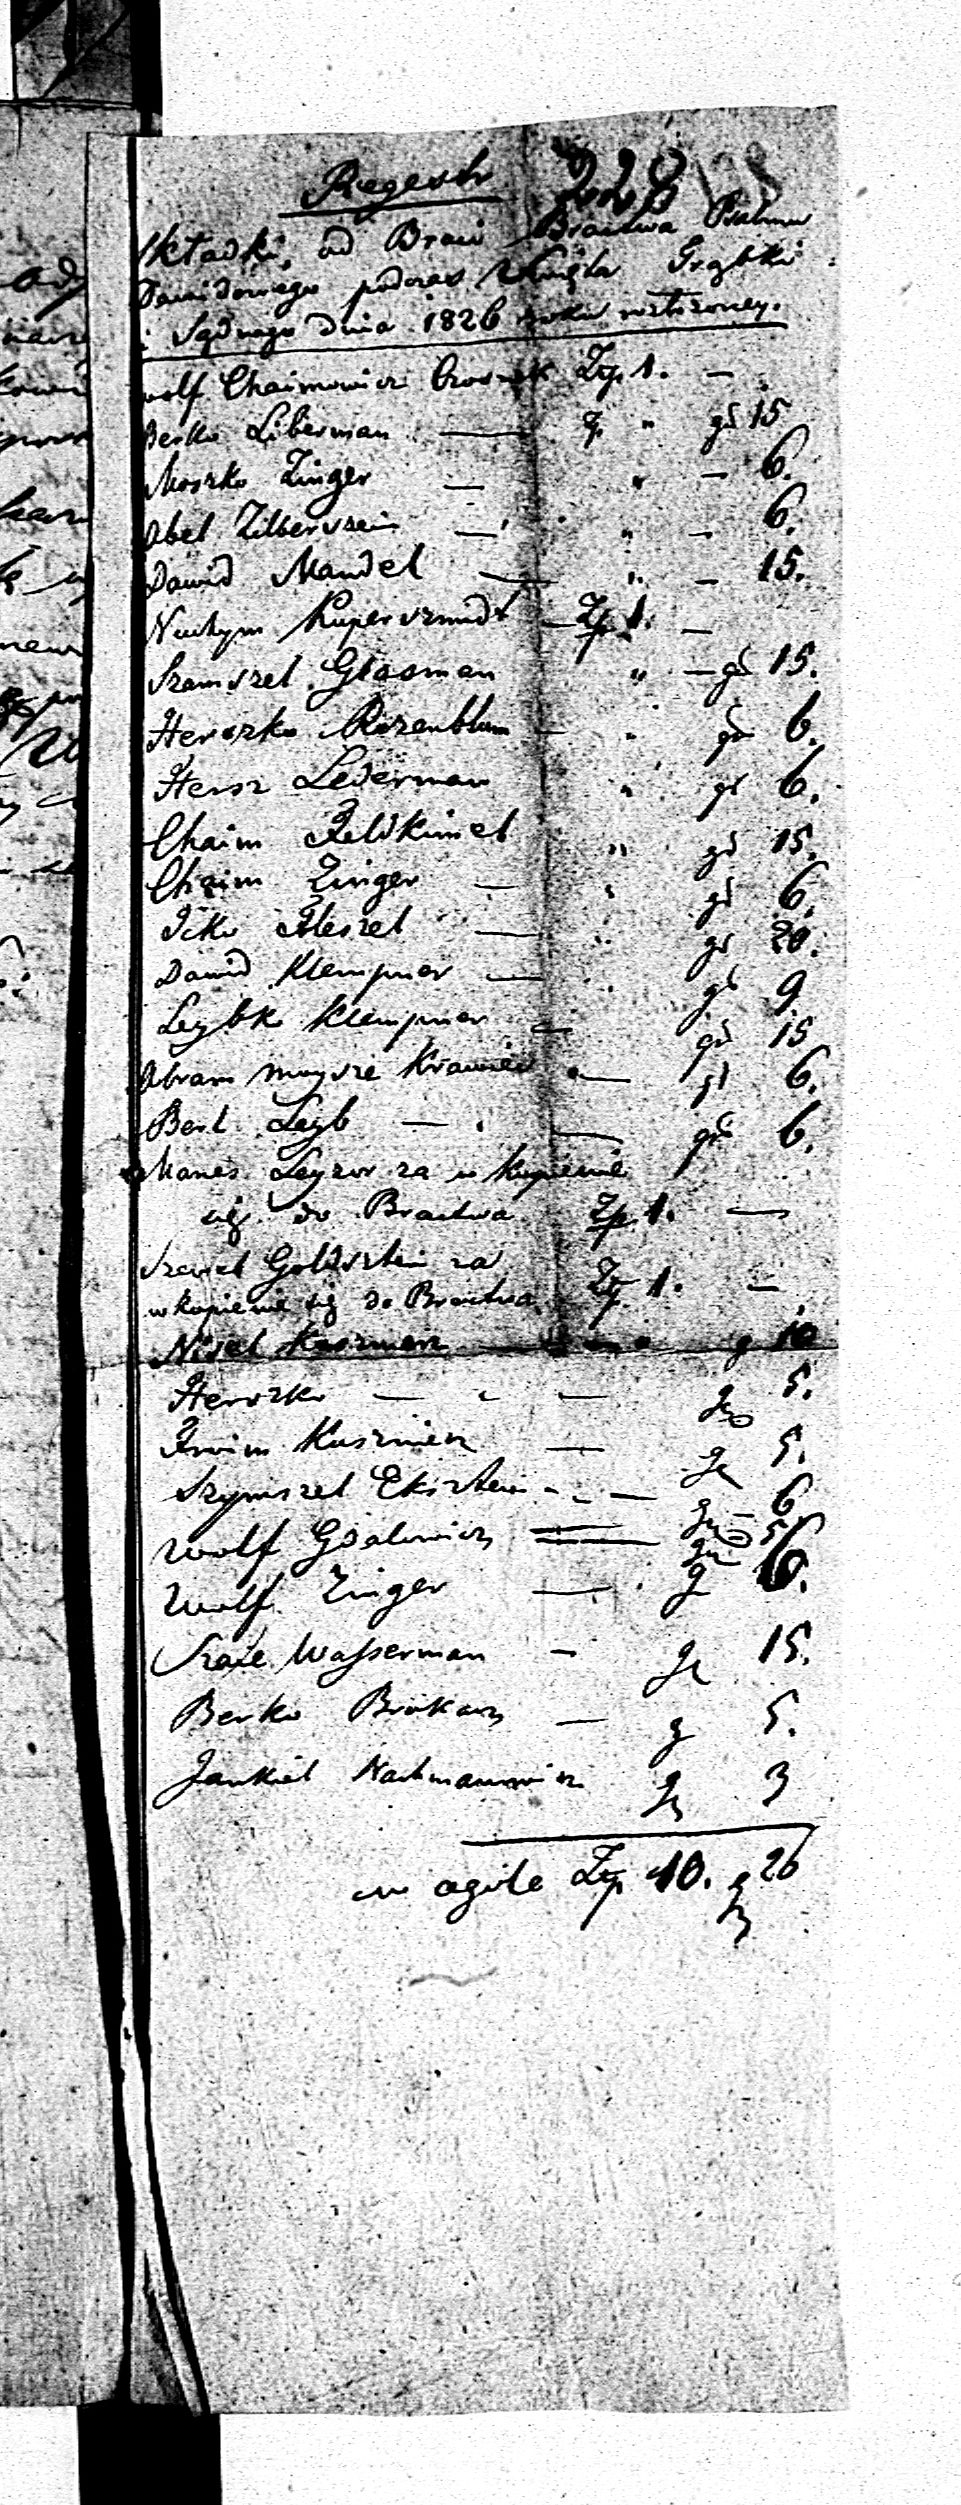 Regestr
Składki od Braci Bractwa Psalmu
Dawidowego podczas Święta Trąbki
i Sądnego dnia 1826 roku złożoney.
Wolf Chaimowicz Zp. 1. —
Berko Liberman — Z " gr 15
Moszko Zinger — " — 6.
Abel Zilbersztein — " — 6.
Dawid Mandel — " — 15.
Nuchym Kuperszmidt — Zp. 1. —
Szamszel Glasman " — gr 15.
Herszko Rozenblum — " gr 6.
Hersz Lederman " gr 6.
Chaim Feldkimel " gr 15.
Chaim Zinger — " gr 6.
Icko Fleszel — " gr 20.
Dawid Klempner — " gr 9.
Leybko Klempner — gr 15
Abram Moysze Krawiec — gr 6.
Berl Leyb — — gr 6.
Manes Leyzor za wkupienie
się do Bractwa Zp. 1. —
Szewel Goldsztein za
wkupienie się do Bractwa Zp 1. —
Nisel Kuszmierz — g 10
Herszko — " — gr 5.
Froim Kuszmierz — gr 5.
Szymszel Eksztein — gr 6
Wolf — gr 5
Wolf Zinger — g 6.
Szaie Wasserman — gr 15.
Berko Brukarz — g 5.
Jankiel Nachmanowicz gr 3
w ogóle Zp. 10. gr 26